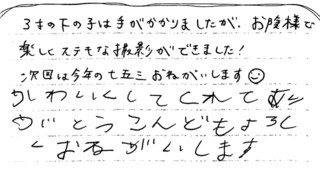 3才の下の子は手がかかりましたが、お陰様で
楽しくステキな撮影ができました!
次回は今年の七五三おねがいします☺
かわいくしてくれてあり
がとうこんどもよろし
くおねがいします